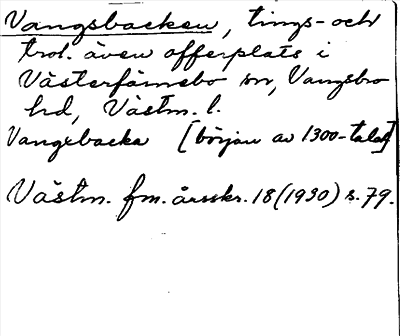 Vangsbacken, tings- och
trol. även offerplats i
Västerfärnebo sn, Vangsbro
hd, Västm. l.
Vangxbacka [början av 1300-talet]
Västm. fm. årsskr. 18 (1930) s. 79.